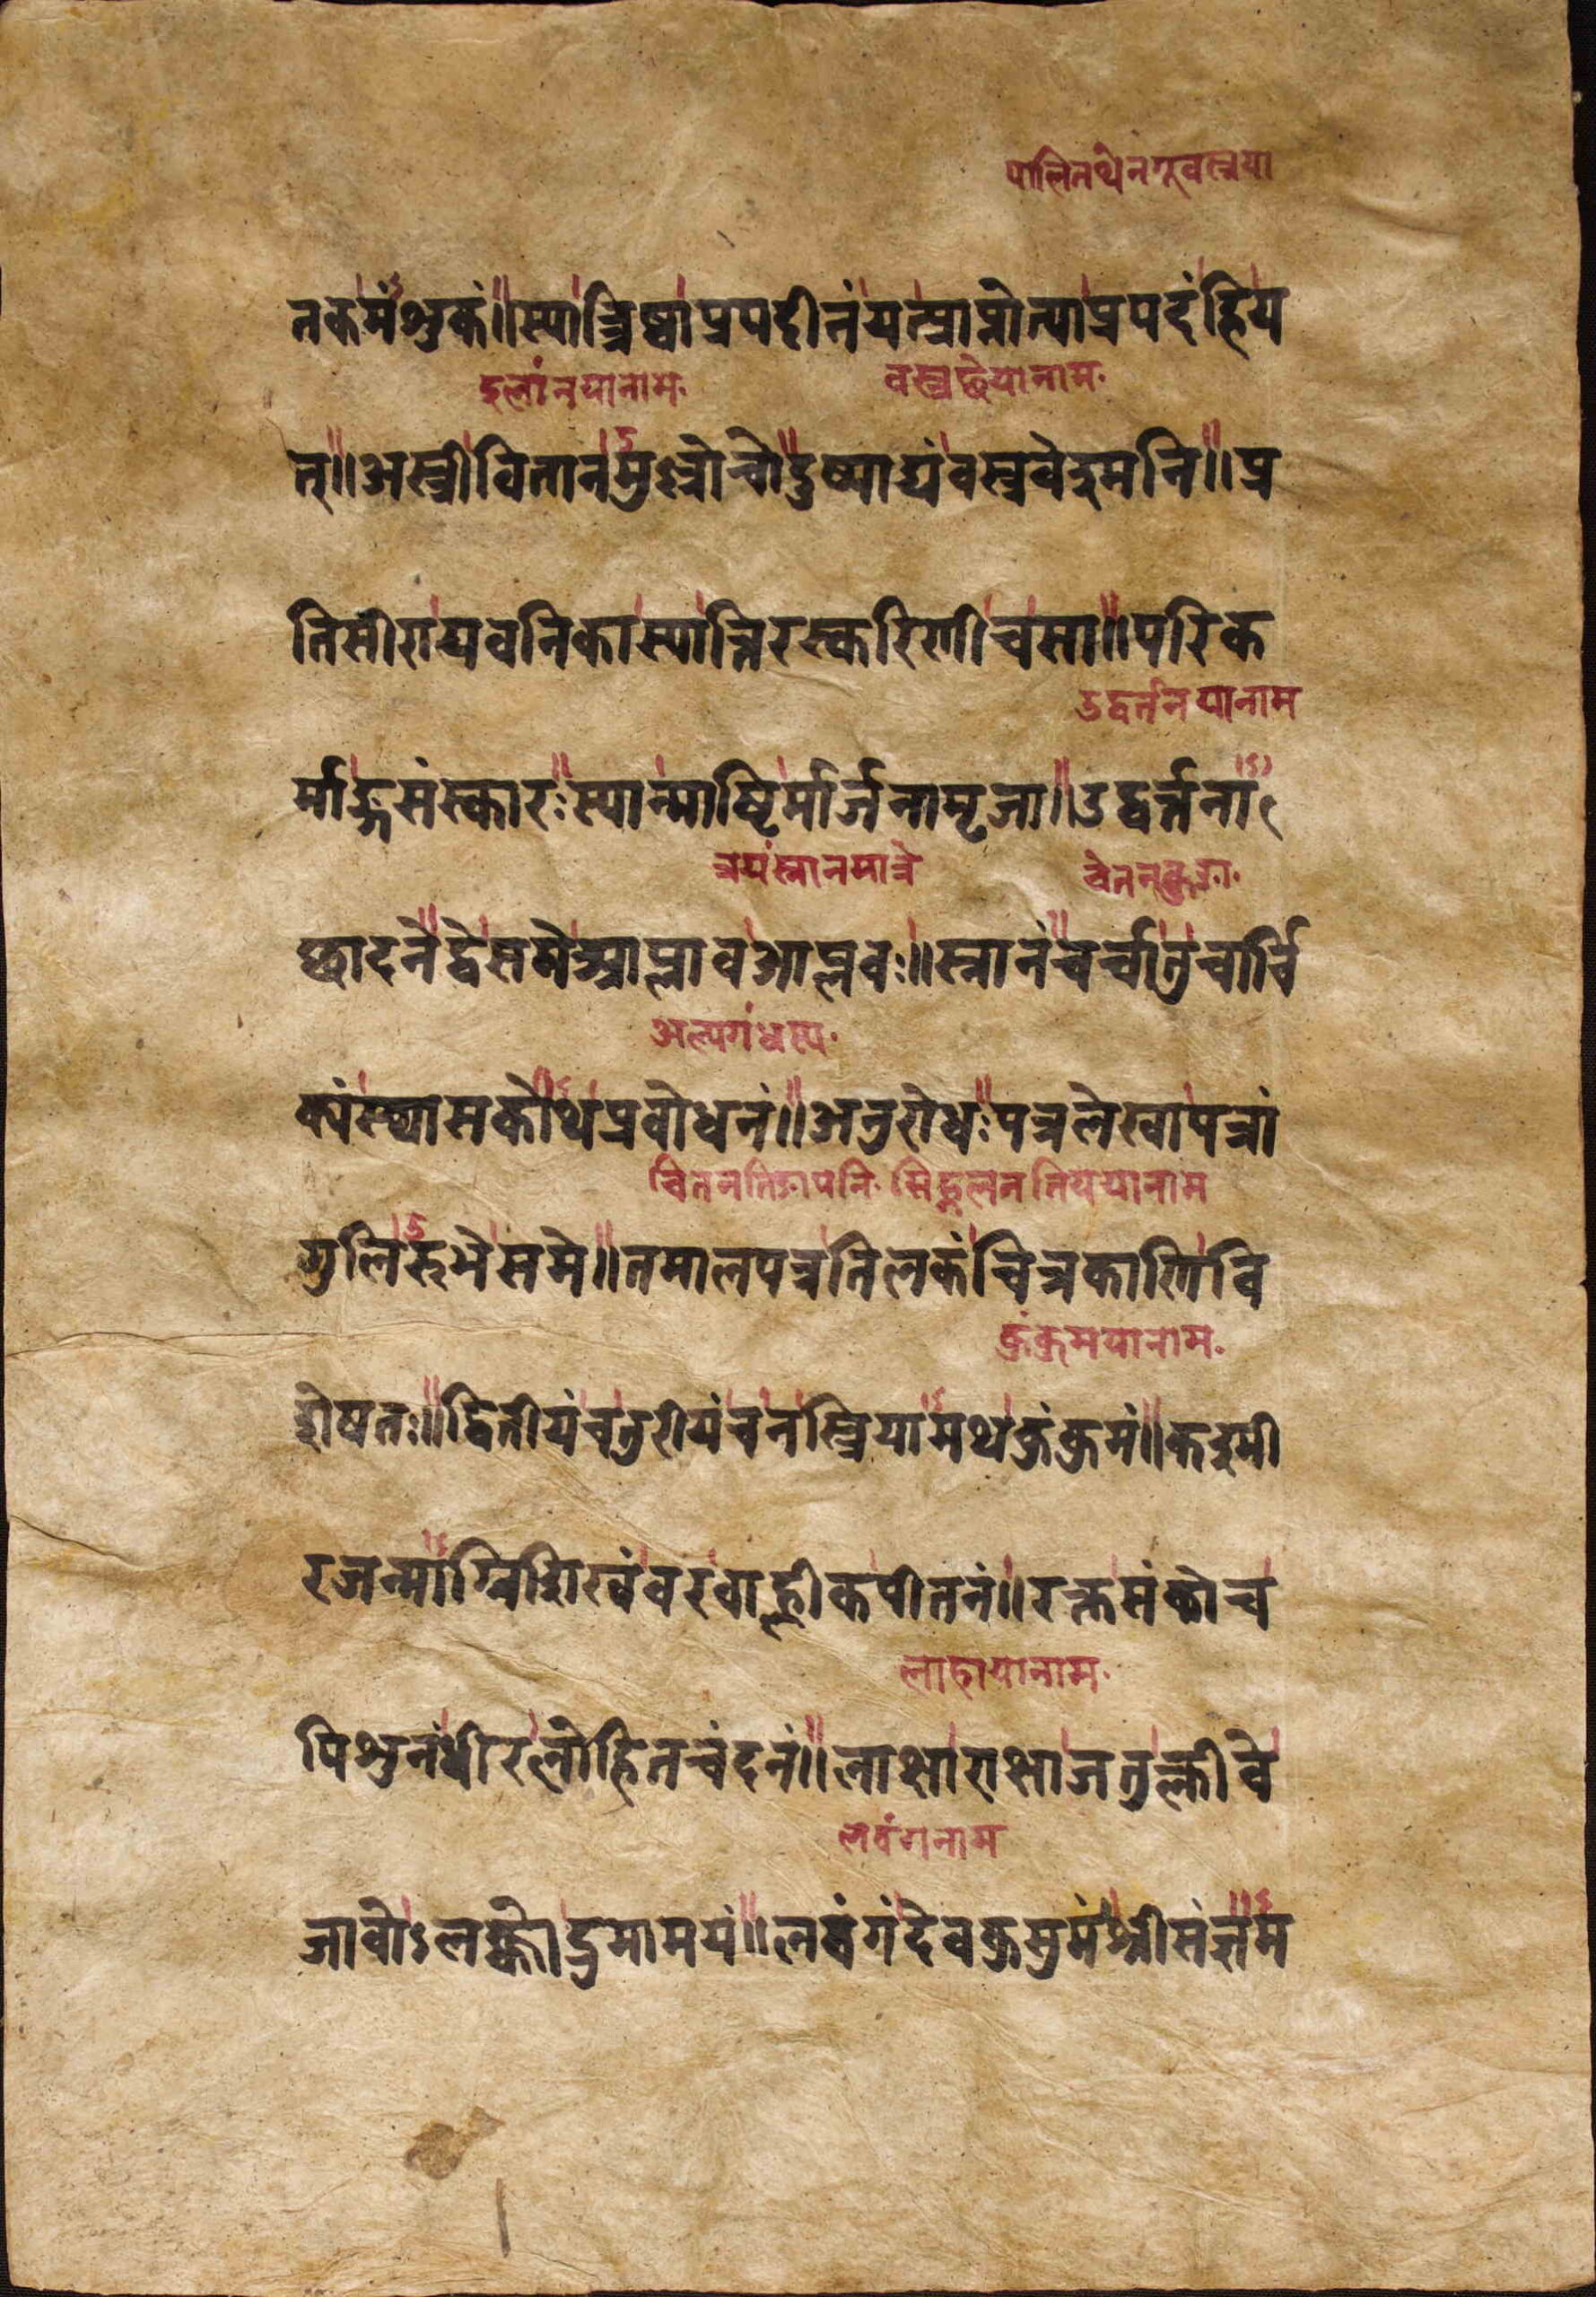 पालितथेनगूवस्त्रया
तकमंशुकं॥स्यात्त्रिष्वाप्रपदीनंयत्प्राप्नोत्याप्रपदंहिय
दुलांनयानाम· वस्त्रछेयानाम·
त्॥अस्त्रीवितानमुल्लोचोदुष्याद्यंवस्त्रवेश्मनि॥प्र
तिसीरायवनिकास्यात्तिरस्करिणीचसा॥परिक
उद्वर्तनयानाम
र्माङ्गसंस्कारःस्यान्मार्ष्टिर्मार्जनामृजा॥उद्वर्त्तना
त्रयंस्नानमात्रे
छादनेद्वेसमेआप्लावआप्लवः॥स्नानंचर्चातुचार्चि
अल्पगंधस्य·
क्यंस्थासकोथप्रवोधनं॥अनुरोधःपत्रलेखापत्रां
चितनतिङापनि· सिद्धलनतिययानाम
गुलिरुभेसमे॥तमालपत्रतिलकंचित्रकाणिवि
कुंकुमयानाम·
शेषतः॥द्वितीयंचतुरीयंचनस्त्रियामथकुंकुमं॥कश्मी
रजन्माग्निशिखंवरंवाह्लीकपीतनं॥रक्तसंकोच
लाहायानाम·
पिशुनंधीरलोहितचंदनं॥लाक्षाराक्षाजतुक्लीवे
लवंगनाम
जावोऽलक्तोद्रुमामयं॥लवंगंदेवकुसुमंश्रीसंज्ञम